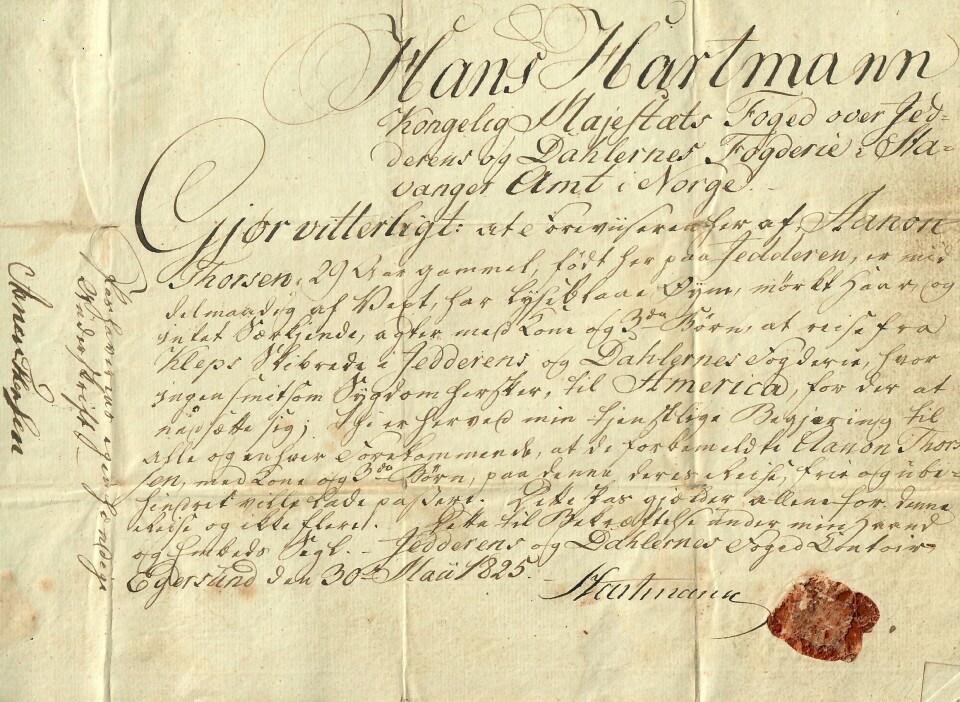 Hans Hartmann
Kongelig Majestæts Foged over Jed-
derens og Dahlernes Fogderie i Sta-
vanger Amt i Norge.
Gjør vitterligt: at Foreviseren her af, Aanon
Thorsen, 29 Aar gammel, født her paa Jedderen, er mid-
delmaadig af Vext, har lyseblaae Øyne, mørkt Haar, og
intet Særkjende, agter med Kone og 3de Børn, at reise fra
Kleps Skibrede i Jedderens og Dahlernes Fogderie, hvor
ingen smitsom Sygdom hersker, til America, for der at
nedsætte sig; Thi er herved min tjenstlige Begjæring til
Alle og enhver Forekommende, at de forbemeldte Aanon Thor-
sen, med Kone og 3de Børn, paa denne deres Reise, frie og ube-
hindret ville lade passere. Dette Pas gjælder allene for denne
Reise og ikke fleere. Dette til Bekræftelse under min Haand
og Embeds Segl. — Jedderens og Dahlernes Foged Contoir
Egersund den 30te Maii 1825.
Hartmann
Pashaverens egenhændige
Underskrift
Anen Tosen